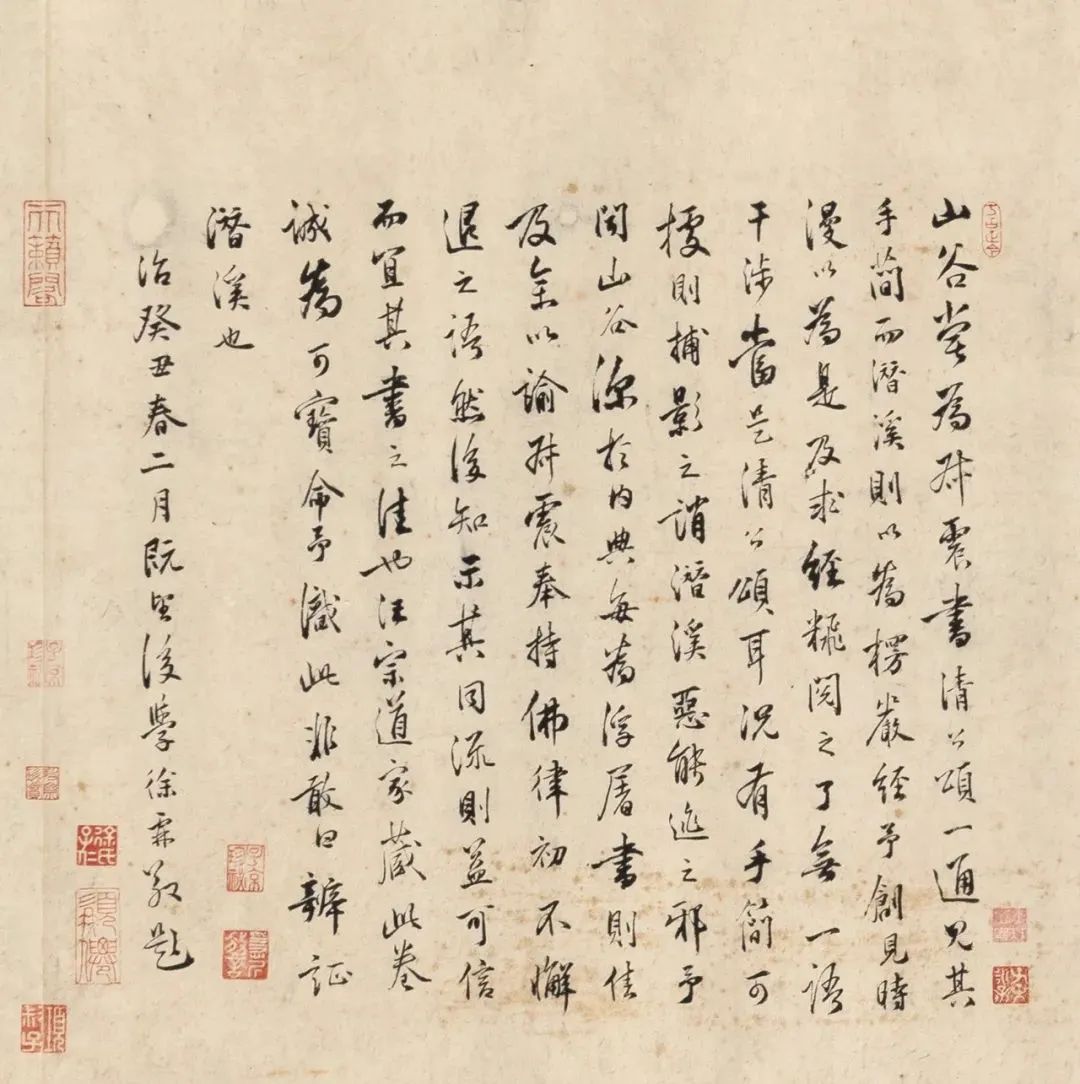 山谷嘗為叔震書清公頌一通見其
手簡而潛溪則以為楞嚴經予創見時
漫以為是及求經粃閱之了無一語
干涉當是清公頌耳況有手簡可
據則捕影之誚潛溪惡能逃之邪予
聞山谷深於內典每為浮屠書則佳
及余以諭叔震奉持佛律初不懈
退之語然後知示其同流則益可信
而宜其書之佳也汪宗道家藏此卷
誠為可寶命予識此非敢曰辯証
潛溪也
治癸丑春二月既望後學徐霖敬題
天籟閣
徐氏子仁
項叔子